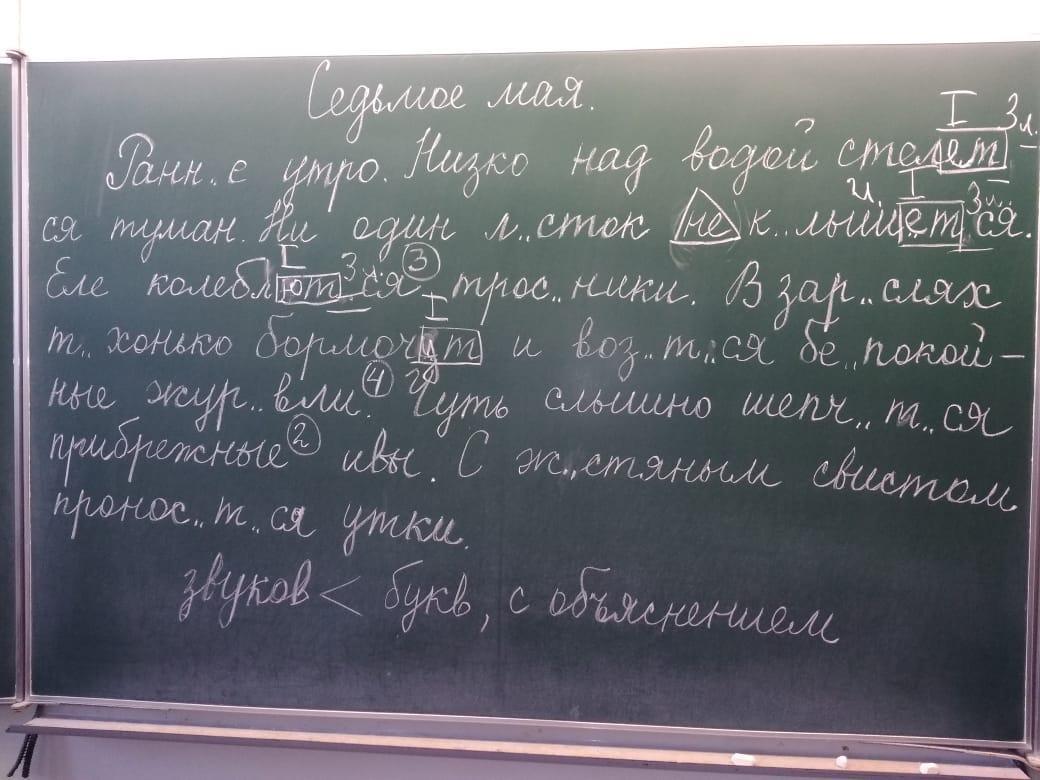 Седьмое мая.
I 3л.
Ранн..е утро. Низко над водой стелет-
и. I 3л.
ся туман. Ни один л..сток не к..лышет ся.
I 3л. 3
Еле колеблют ся трос..ники. В зар..слях
I
т..хонько бормочут и воз..т..ся бе..покой-
4
ные жур..вли. Чуть слышно шепч..т..ся
2
прибрежные ивы. С ж..стяным свистом
пронос..т..ся утки.
звуков < букв, с объяснением